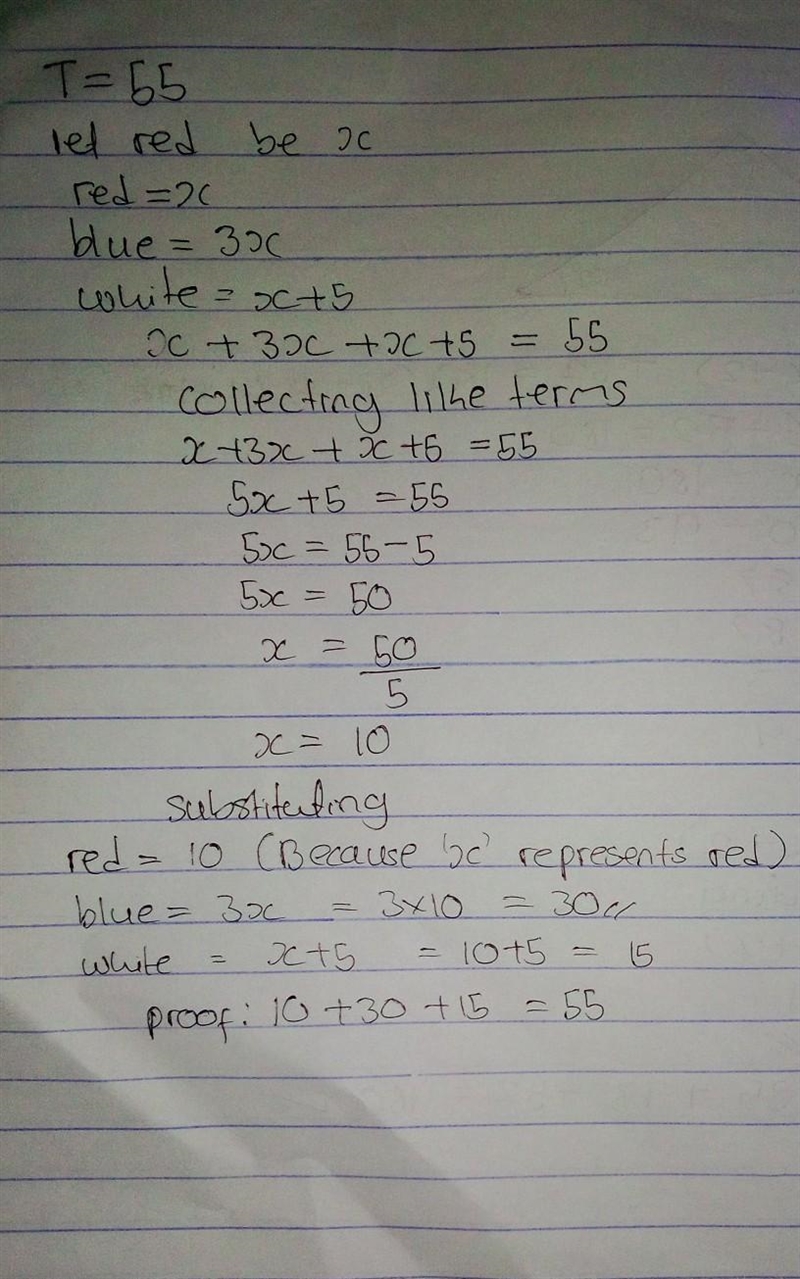 T = 55
let red be x
red = x
blue = 3x
white = x+5
x + 3x + x + 5 = 55
collecting like terms
x + 3x + x + 5 = 55
5x + 5 = 55
5x = 55 - 5
5x = 50
x = 50
5
x = 10
substituting
red = 10 (Because 'x' represents red)
blue = 3x = 3×10 = 30//
white = x+5 = 10+5 = 15
proof: 10 + 30 + 15 = 55